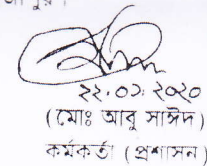 ২২.০১.২০২০
(মোঃ আবু সাঈদ)
কর্মকর্তা (প্রশাসন)